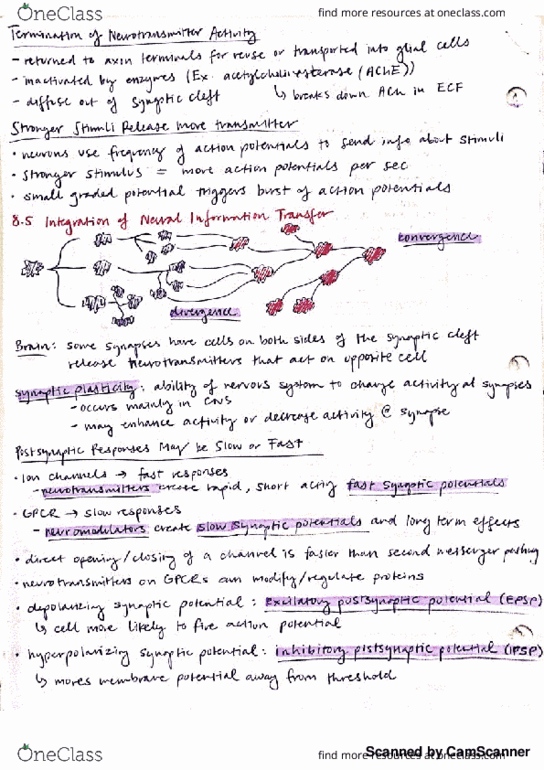 OneClass
find more resources at oneclass.com
Termination of Neurotransmitter Activity
- returned to axon terminals for reuse or transported into glial cells
- inactivated by enzymes (Ex. acetylcholinesterase (AChE))
- diffuse out of synaptic cleft ↳ breaks down ACh in ECF
Stronger Stimuli Release more transmitter
• neurons use frequency of action potentials to send info about stimuli
• stronger stimulus = more action potentials per sec
• small graded potential triggers burst of action potentials
8.5 Integration of Neural Information Transfer
convergence
divergence
Brain: some synapses have cells on both sides of the synaptic cleft
release neurotransmitters that act on opposite cell
synaptic plasticity: ability of nervous system to change activity at synapses
- occurs mainly in CNS
- may enhance activity or decrease activity @ synapse
Postsynaptic Responses May be Slow or Fast
• Ion channels → fast responses
- neurotransmitters create rapid, short acting fast synaptic potentials
• GPCR → slow responses
- neuromodulators create slow synaptic potentials and long term effects
• direct opening/closing of a channel is faster than second messenger
• neurotransmitters on GPCRs can modify/regulate proteins
• depolarizing synaptic potential: Excitatory postsynaptic potential (EPSP)
↳ cell more likely to fire action potential
• hyperpolarizing synaptic potential: inhibitory postsynaptic potential (IPSP)
↳ moves membrane potential away from threshold
OneClass
find more resources at oneclass.com
Scanned by CamScanner